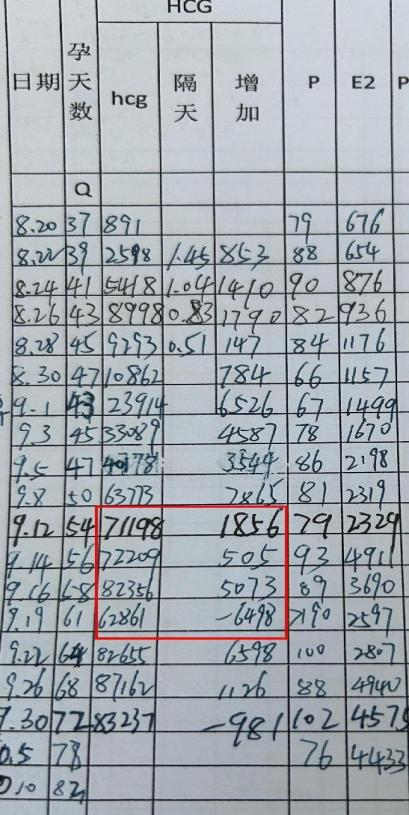 HCG
日期 孕天数 hcg 隔天 增加 P E2 P
Q
8.20 37 891 79 676
8.22 39 2598 1.45 853 88 654
8.24 41 5418 1.04 1410 90 876
8.26 43 8998 0.83 1790 82 936
8.28 45 9293 0.51 147 84 1176
8.30 47 10862 784 66 1157
9.1 43 23914 6526 67 1499
9.3 45 33089 4587 78 1670
9.5 47 3544 86 2198
9.8 50 63773 7865 81 2319
9.12 54 71198 1856 79 2329
9.14 56 72209 505 93 4911
9.16 58 82356 5073 89 3690
9.19 61 62861 -6498 >190 2597
9.22 64 82655 6598 100 2807
9.26 68 87162 1126 88 4940
9.30 72 83237 -981 102 4575
0.5 78 76 4433
10 82